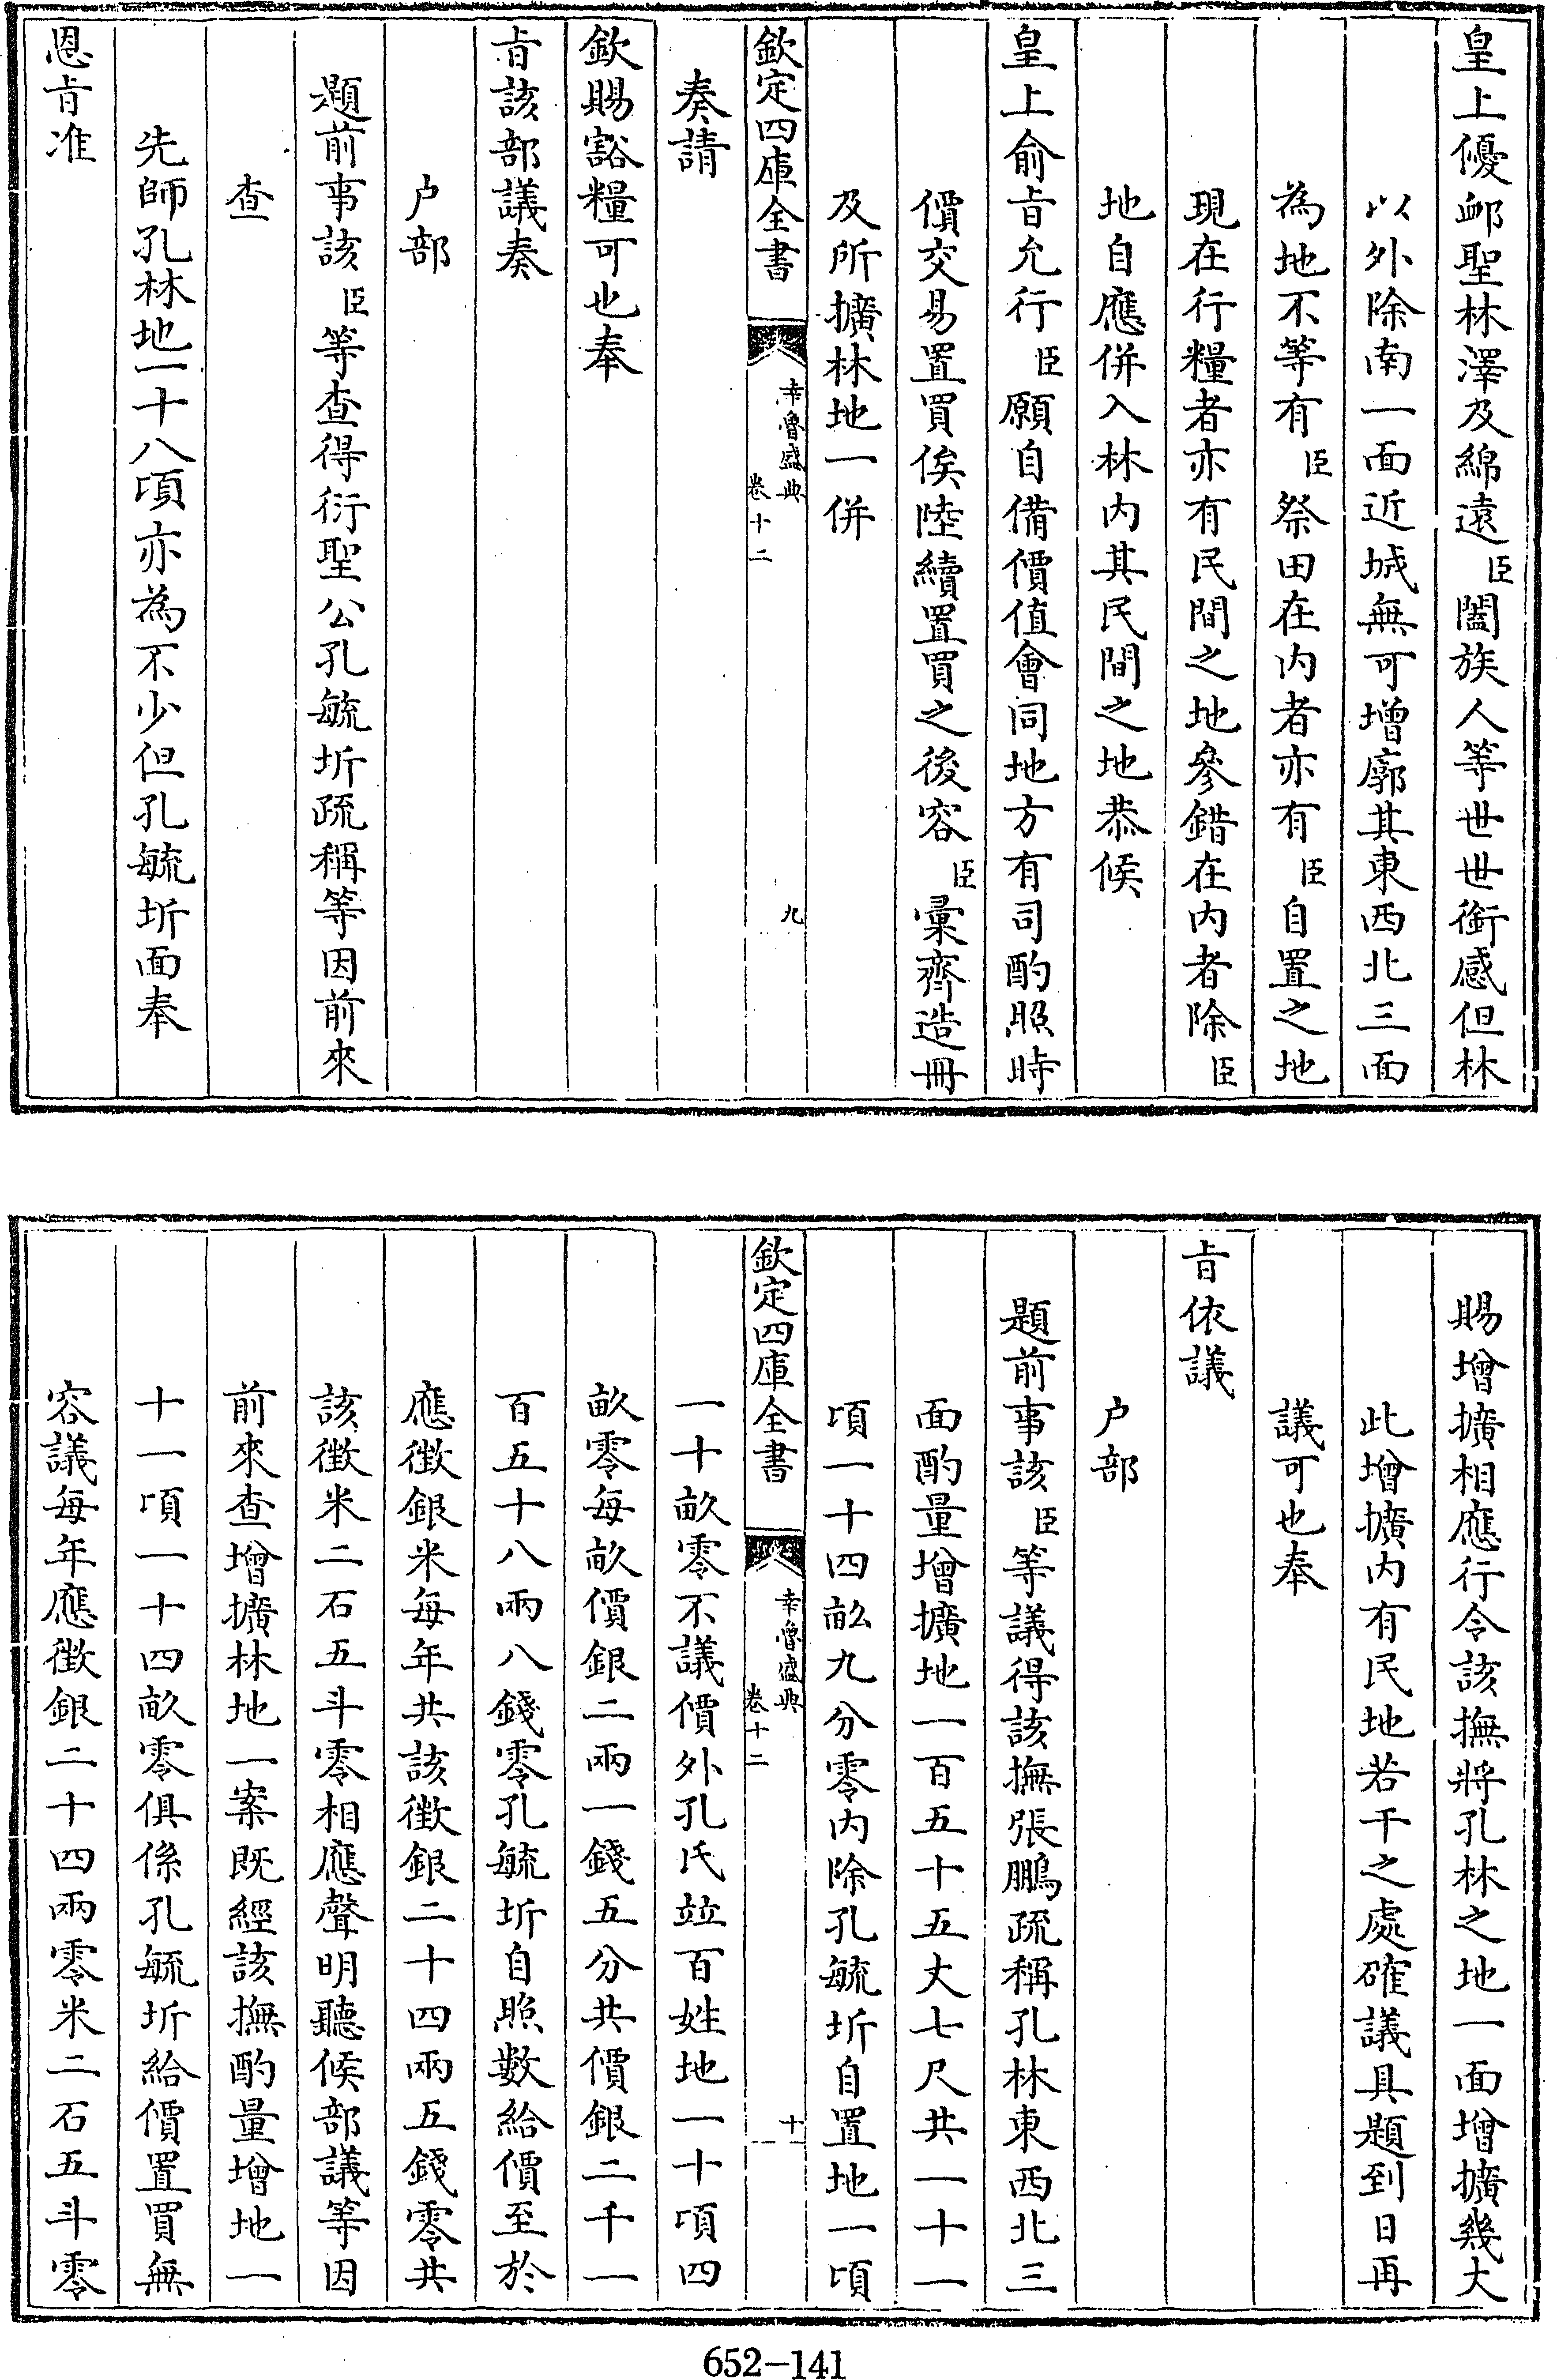 皇上優䘏聖林澤及綿遠臣闔族人等世世銜感但林
以外除南一面近城無可增廓其東西北三面
為地不等有臣祭田在内者亦有臣自置之地
現在行糧者亦有民間之地參錯在内者除臣
地自應併入林内其民間之地恭候
皇上俞㫖允行臣願自備價值會同地方有司酌照時
價交易置買俟陸續置買之後容臣彚齊造冊
及所擴林地一併
欽定四庫全書
幸魯盛典
卷十二
九
奏請
欽賜豁糧可也奉
㫖該部議奏
户部
題前事該臣等查得衍聖公孔毓圻疏稱等因前來
查
先師孔林地一十八頃亦為不少但孔毓圻面奉
恩㫖准
賜增擴相應行令該撫將孔林之地一面增擴幾大
此增擴内有民地若干之處確議具題到日再
議可也奉
㫖依議
户部
題前事該臣等議得該撫張鵬疏稱孔林東西北三
面酌量增擴地一百五十五丈七尺共一十一
頃一十四畝九分零内除孔毓圻自置地一頃
欽定四庫全書
幸魯盛典
卷十二
十
一十畝零不議價外孔氏並百姓地一十頃四
畝零每畝價銀二兩一錢五分共價銀二千一
百五十八兩八錢零孔毓圻自照數給價至於
應徴銀米每年共該徴銀二十四兩五錢零共
該徴米二石五斗零相應聲明聽候部議等因
前來查增擴林地一案既經該撫酌量增地一
十一頃一十四畝零俱係孔毓圻給價置買無
容議每年應徴銀二十四兩零米二石五斗零
652-141